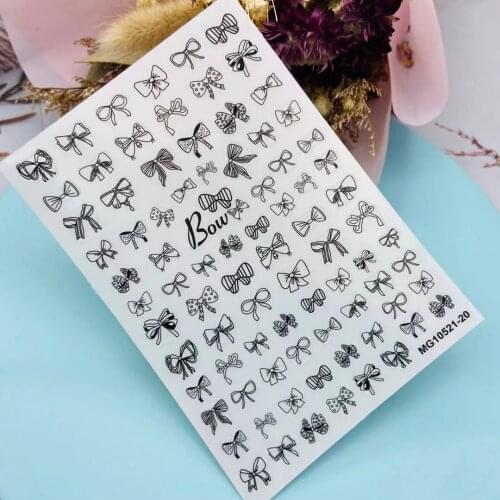 Bow
MG10521-20